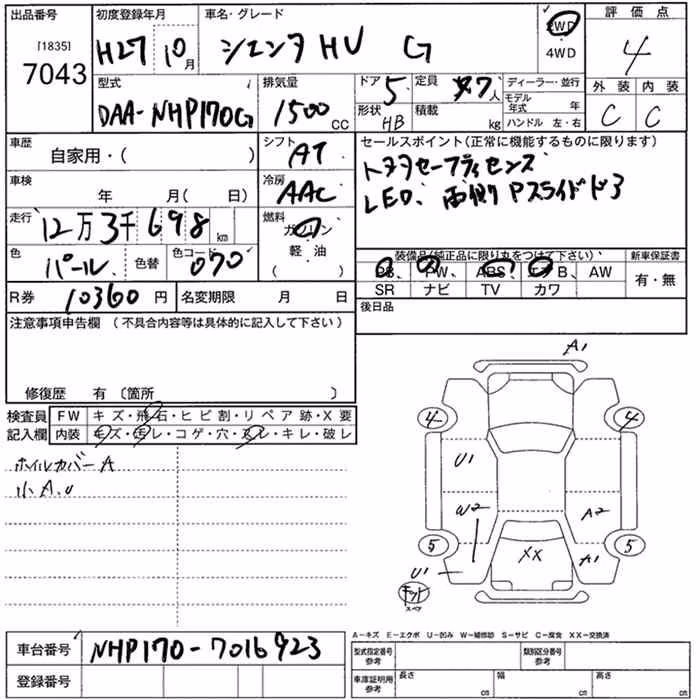 出品番号 初度登録年月 車名・グレード 2WD 評価点
[1835] H27 10月 シエンタ HV G 4WD 4
7043
型式 排気量 ドア 5 定員 7人 ディーラー・並行 外装 内装
DAA-NHP170G 1500 CC 形状 HB 積載 kg モデル年式 年 C C
ハンドル 左・右
車歴 シフト セールスポイント(正常に機能するものに限ります)
自家用・( ) AT トヨタセーフティセンス
車検 冷房 LED、両側Pスライドドア
年 月( 日) AAC
走行 燃料
12万3千698 km ガソリン
色 色替 色コード 軽・油
パール 070 ( ) 装備品(純正品に限り丸をつけて下さい) 新車保証書
PS、PW、ABS、エアB、AW 有・無
R券 10360円 名変期限 月 日 SR ナビ TV カワ
注意事項申告欄 (不具合内容等は具体的に記入して下さい) 後日品
修復歴 有〔箇所 〕
検査員 FW キズ・飛石・ヒビ割・リペア跡・X要
記入欄 内装 キズ・汚レ・コゲ・穴・スレ・キレ・破レ
ホイルカバーA
小A.U
A1
4 4
U1
W2 A2
5 5
XX A1
U1
キット
スペア
A-キズ E-エクボ U-凹み W-補修跡 S-サビ C-腐食 XX-交換済
車台番号 NHP170-7016923 型式指定番号 参考 類別区分番号 参考
登録番号 車庫証明用 参考 長さ cm 幅 cm 高さ cm